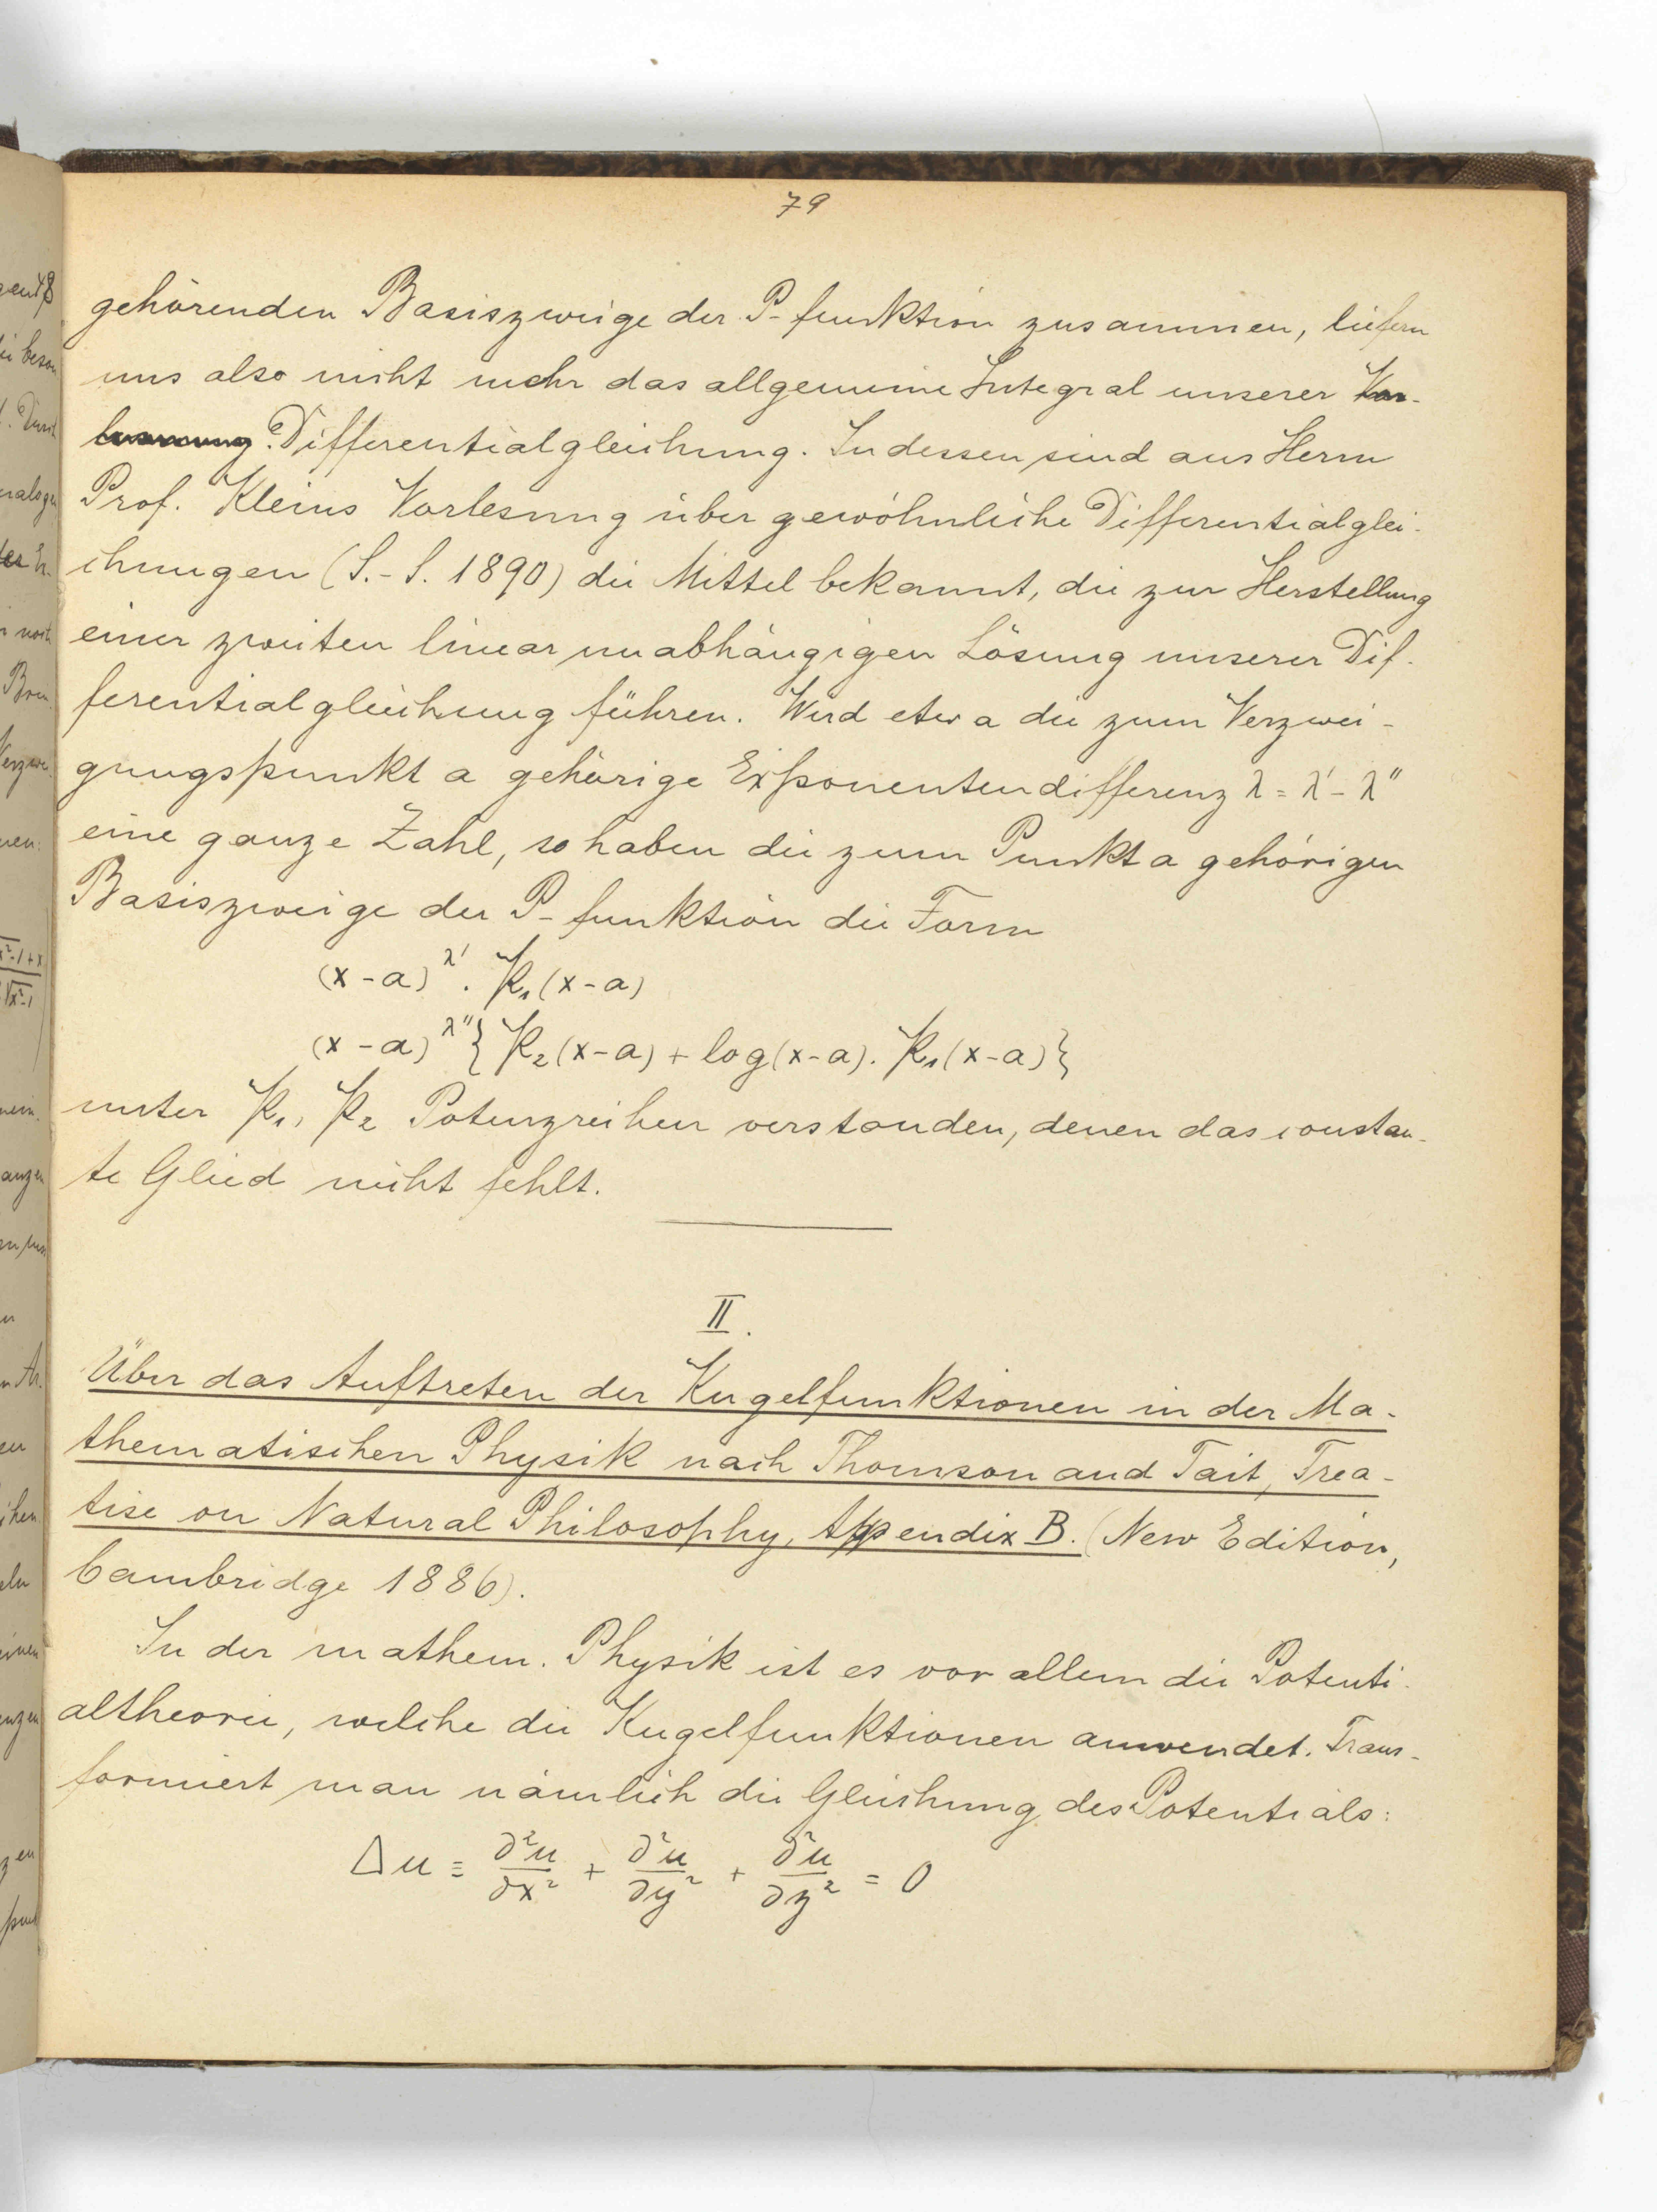 79
gehörenden Basiszweige der P-funktion zusammen, liefern
uns also nicht mehr das allgemeine Integral unserer Vor-
lesung. Differentialgleichung. Indessen sind aus Herrn
Prof. Kleins Vorlesung über gewöhnliche Differentialglei-
chungen (S.-S. 1890) die Mittel bekannt, die zur Herstellung
einer zweiten linear unabhängigen Lösung unserer Dif-
ferentialgleichung führen. Wird etwa die zum Verzwei-
gungspunkt a gehörige Exponentendifferenz λ = λ' - λ''
eine ganze Zahl, so haben die zum Punkt a gehörigen
Basiszweige der P-funktion die Form
(x-a)^λ' . 𝔓₁(x-a)
(x-a)^λ'' { 𝔓₂(x-a) + log(x-a) . 𝔓₁(x-a) }
unter 𝔓₁, 𝔓₂ Potenzreihen verstanden, denen das constan-
te Glied nicht fehlt.
II.
Über das Auftreten der Kugelfunktionen in der Ma-
thematischen Physik nach Thomson and Tait, Trea-
tise on Natural Philosophy, Appendix B. (New Edition,
Cambridge 1886).
In der mathem. Physik ist es vor allem die Potenti-
altheorie, welche die Kugelfunktionen anwendet. Trans-
formiert man nämlich die Gleichung des Potentials:
Δu = ∂²u/∂x² + ∂²u/∂y² + ∂²u/∂z² = 0